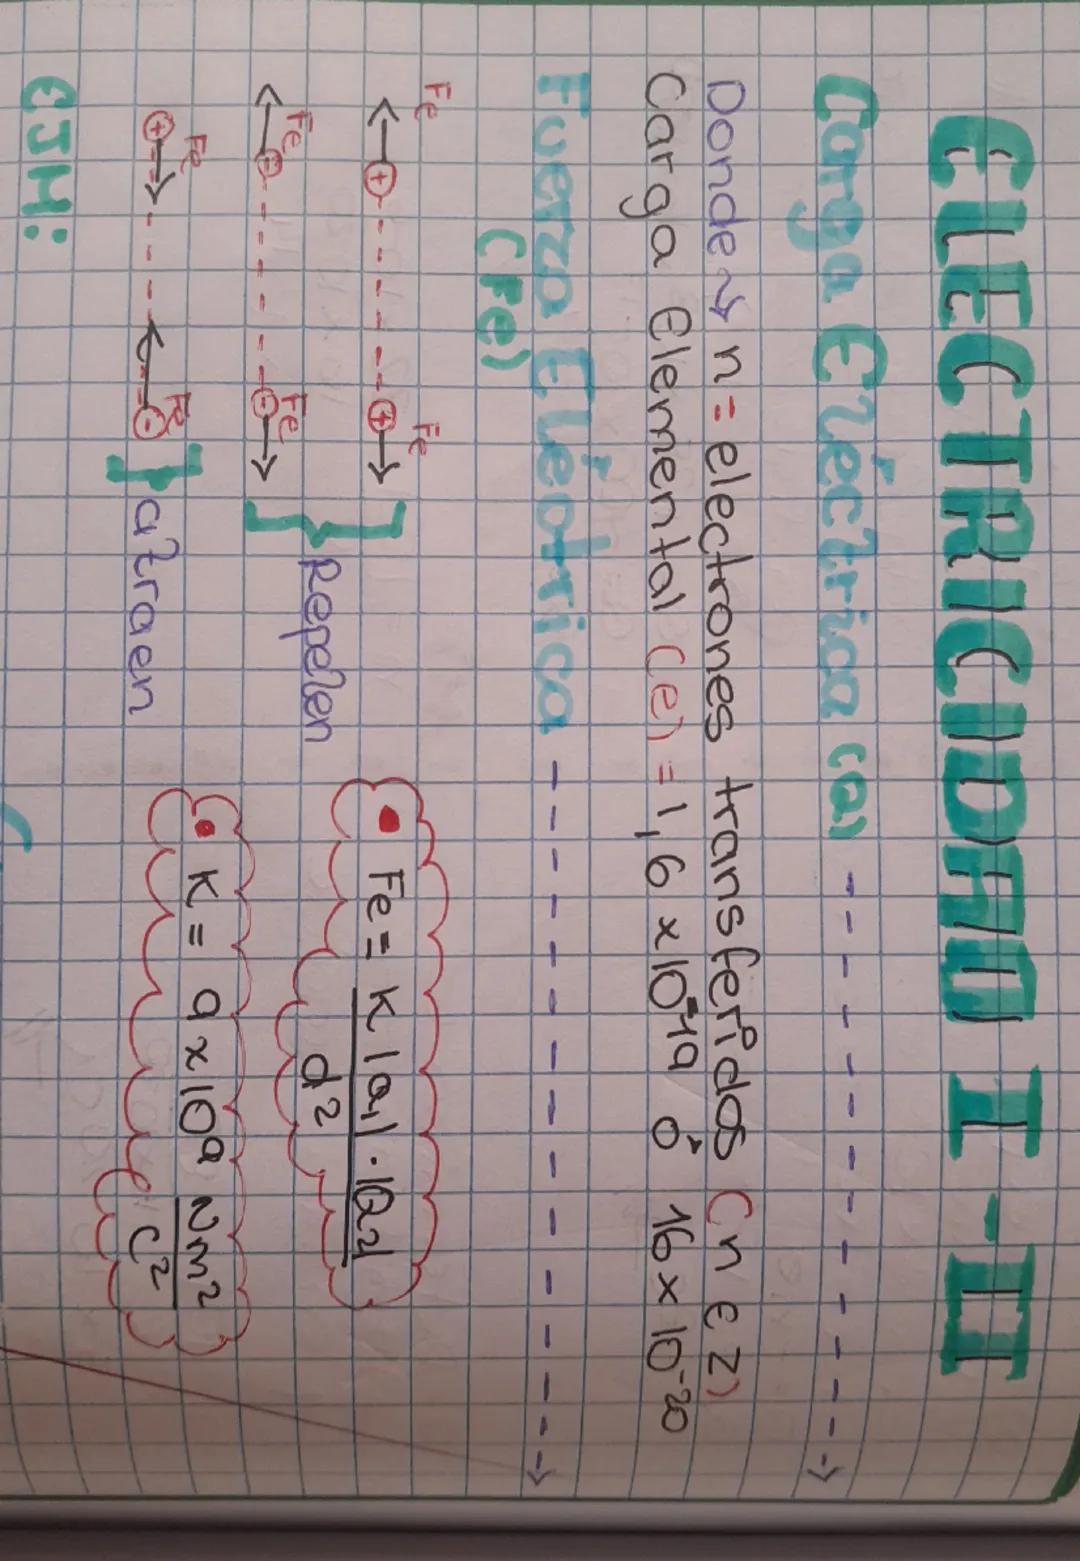 ELECTRICIDAD I - II
Carga Eléctrica (Q)
Donde → n = electrones transferidos (n ∈ Z)
Carga Elemental (e) = 1,6 x 10⁻¹⁹ ó 16 x 10⁻²⁰
Fuerza Eléctrica
(Fe)
Fe + + Fe
Fe - - Fe
Repelen
Fe + - Fe
atraen
• Fe = K |Q₁| · |Q₂|
d²
• K = 9 x 10⁹ Nm²
C²
EJM: